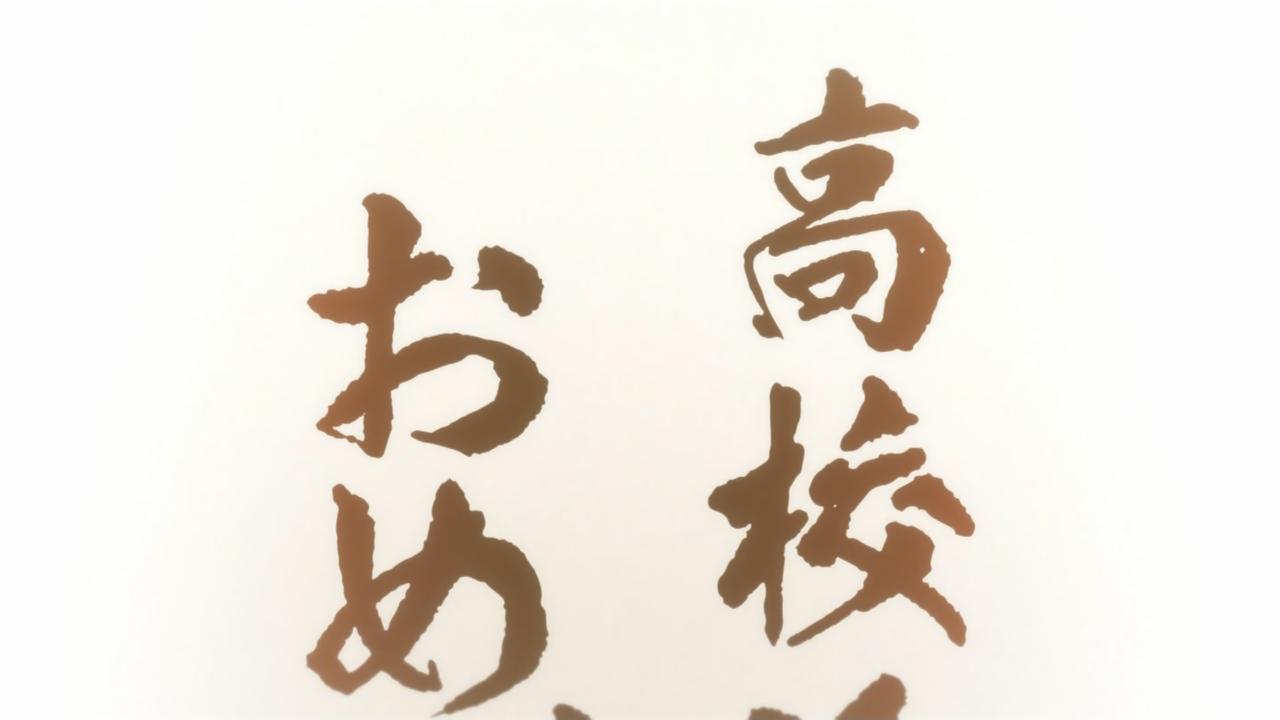 高校
おめ